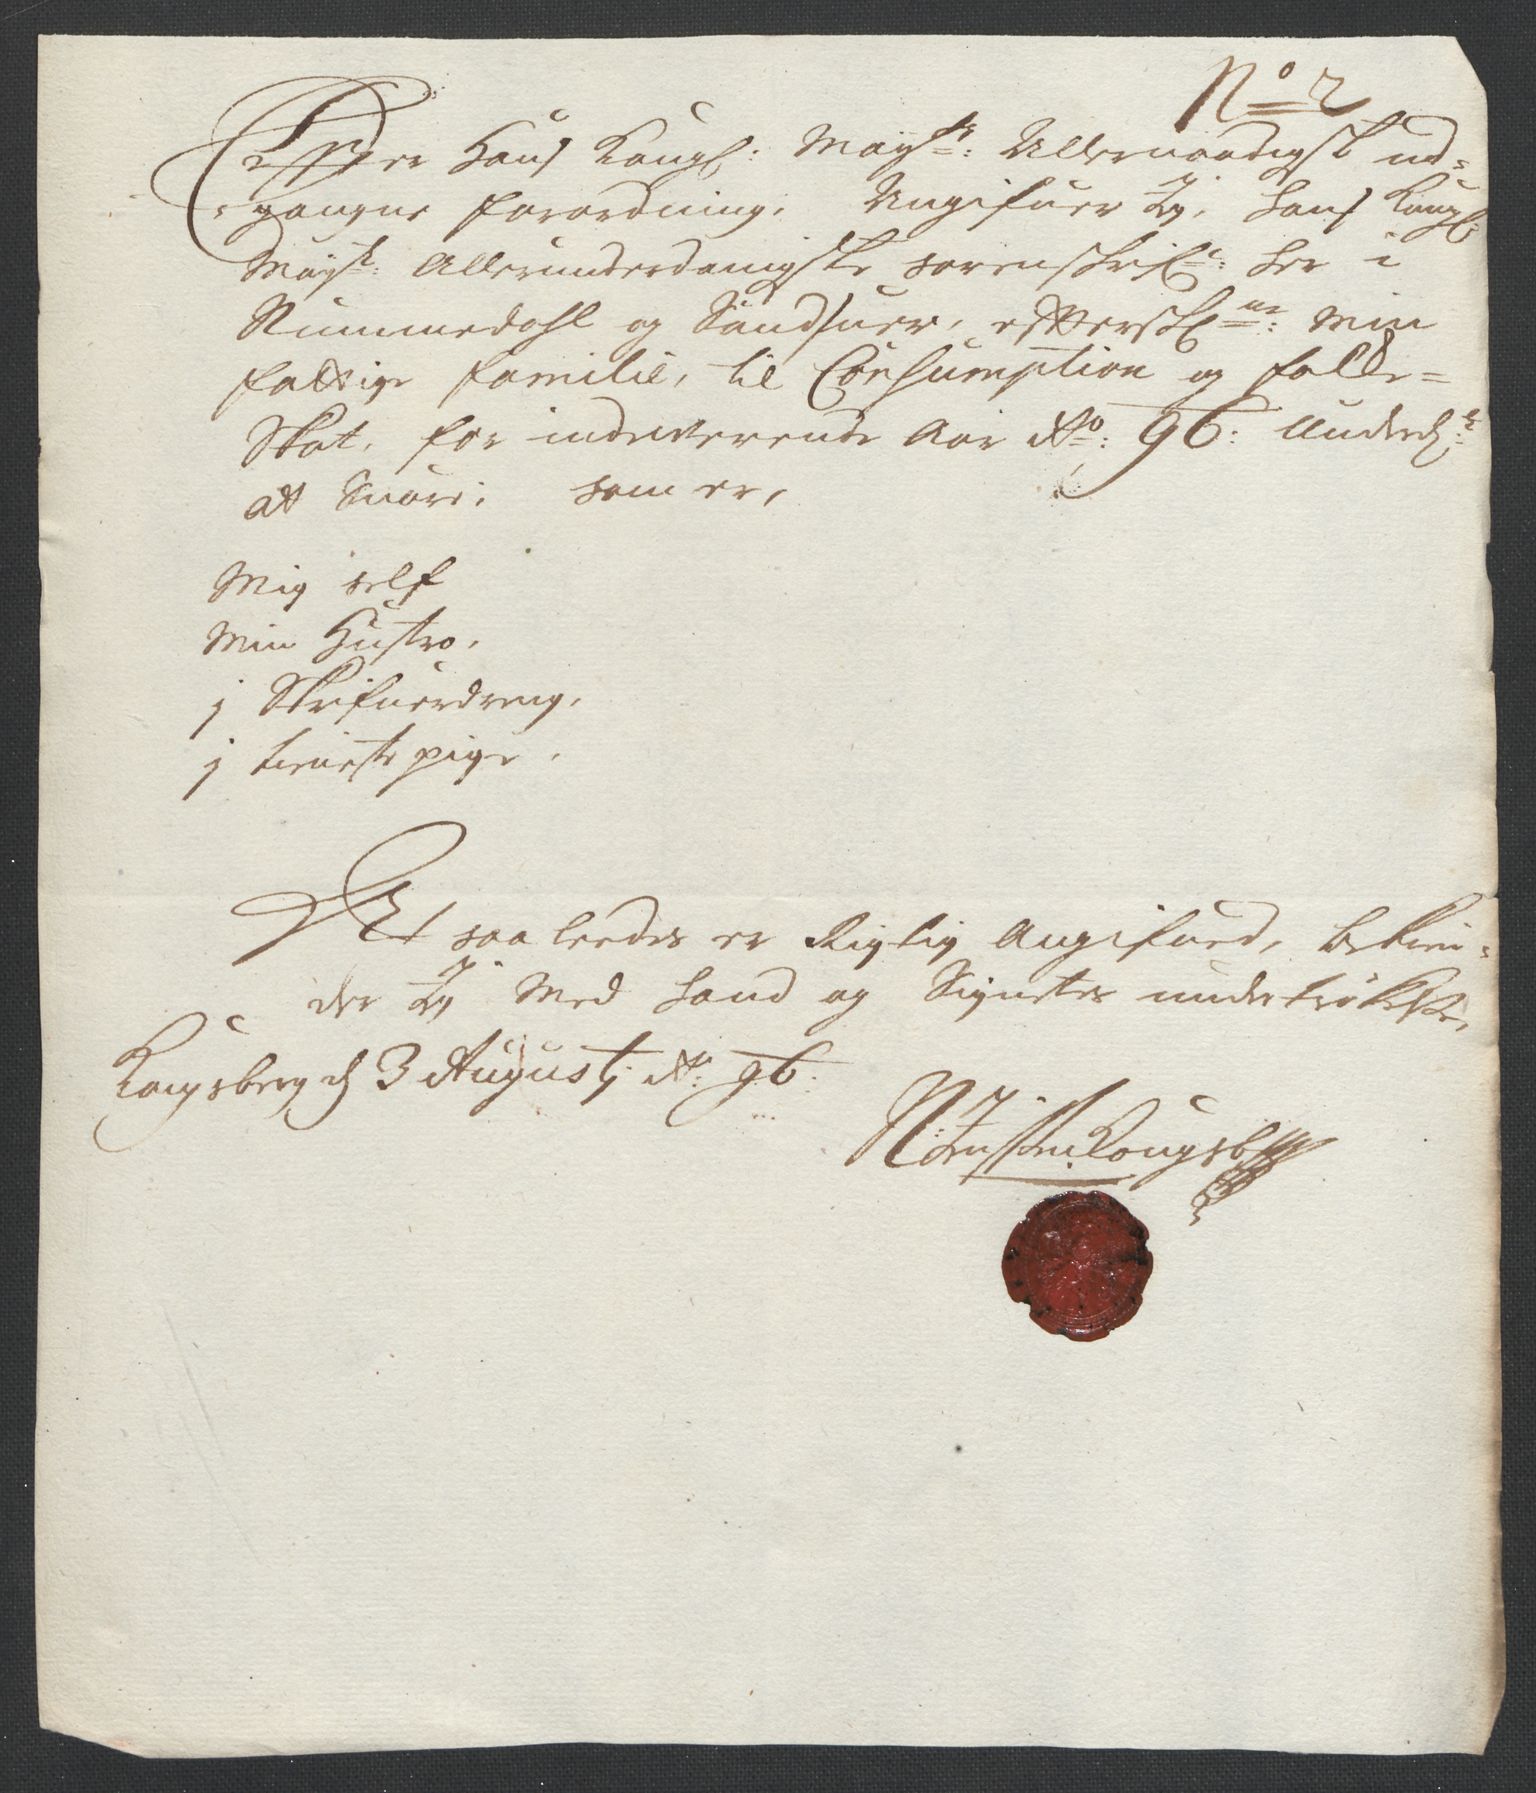 No 2
Effter Hans Kongl: Mayts: Allernaadigst ud-
gangne forordning, Angifuer Jeg, Hans Kongl:
Mayts: Allerunderdanigste sorenskrifr: her i
Nummedahl og Sandsuer, effterskne: Min
fattige familie, til Consumption og folke-
Skat, for indeverende Aar Ao: 96:
at Suare, som er,
Mig self
Min Hustro,
j Skrifuerdreng,
j tieniste pige,
At saaleedes er Rigtig Angifued, bekien-
der Jeg Med Haand og Signetes undertrökelse,
Kongsberg d 3 Augustj Ao: 96: